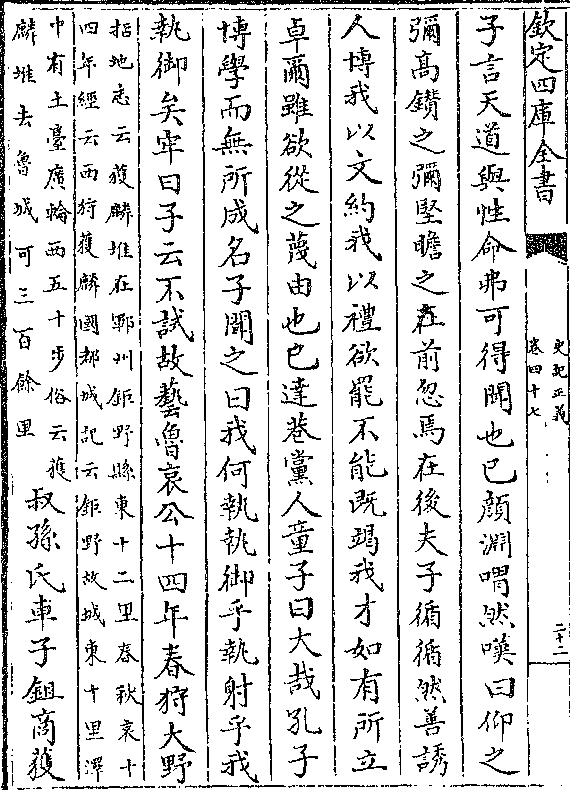 欽定四庫全書
史記正義
卷四十七
二十二
子言天道與性命弗可得聞也已顔淵喟然嘆曰仰之
彌高鑽之彌堅瞻之在前忽焉在後夫子循循然善誘
人博我以文約我以禮欲罷不能既竭我才如有所立
卓爾雖欲從之蔑由也已達巷黨人童子曰大哉孔子
博學而無所成名子聞之曰我何執執御乎執射乎我
執御矣牢曰子云不試故藝魯哀公十四年春狩大野
括地志云獲麟堆在鄆州鉅野縣東十二里春秋哀十
四年經云西狩獲麟國都城記云鉅野故城東十里澤
中有土臺廣輪西五十步俗云獲
麟堆去魯城可三百餘里
叔孫氏車子鉏商獲